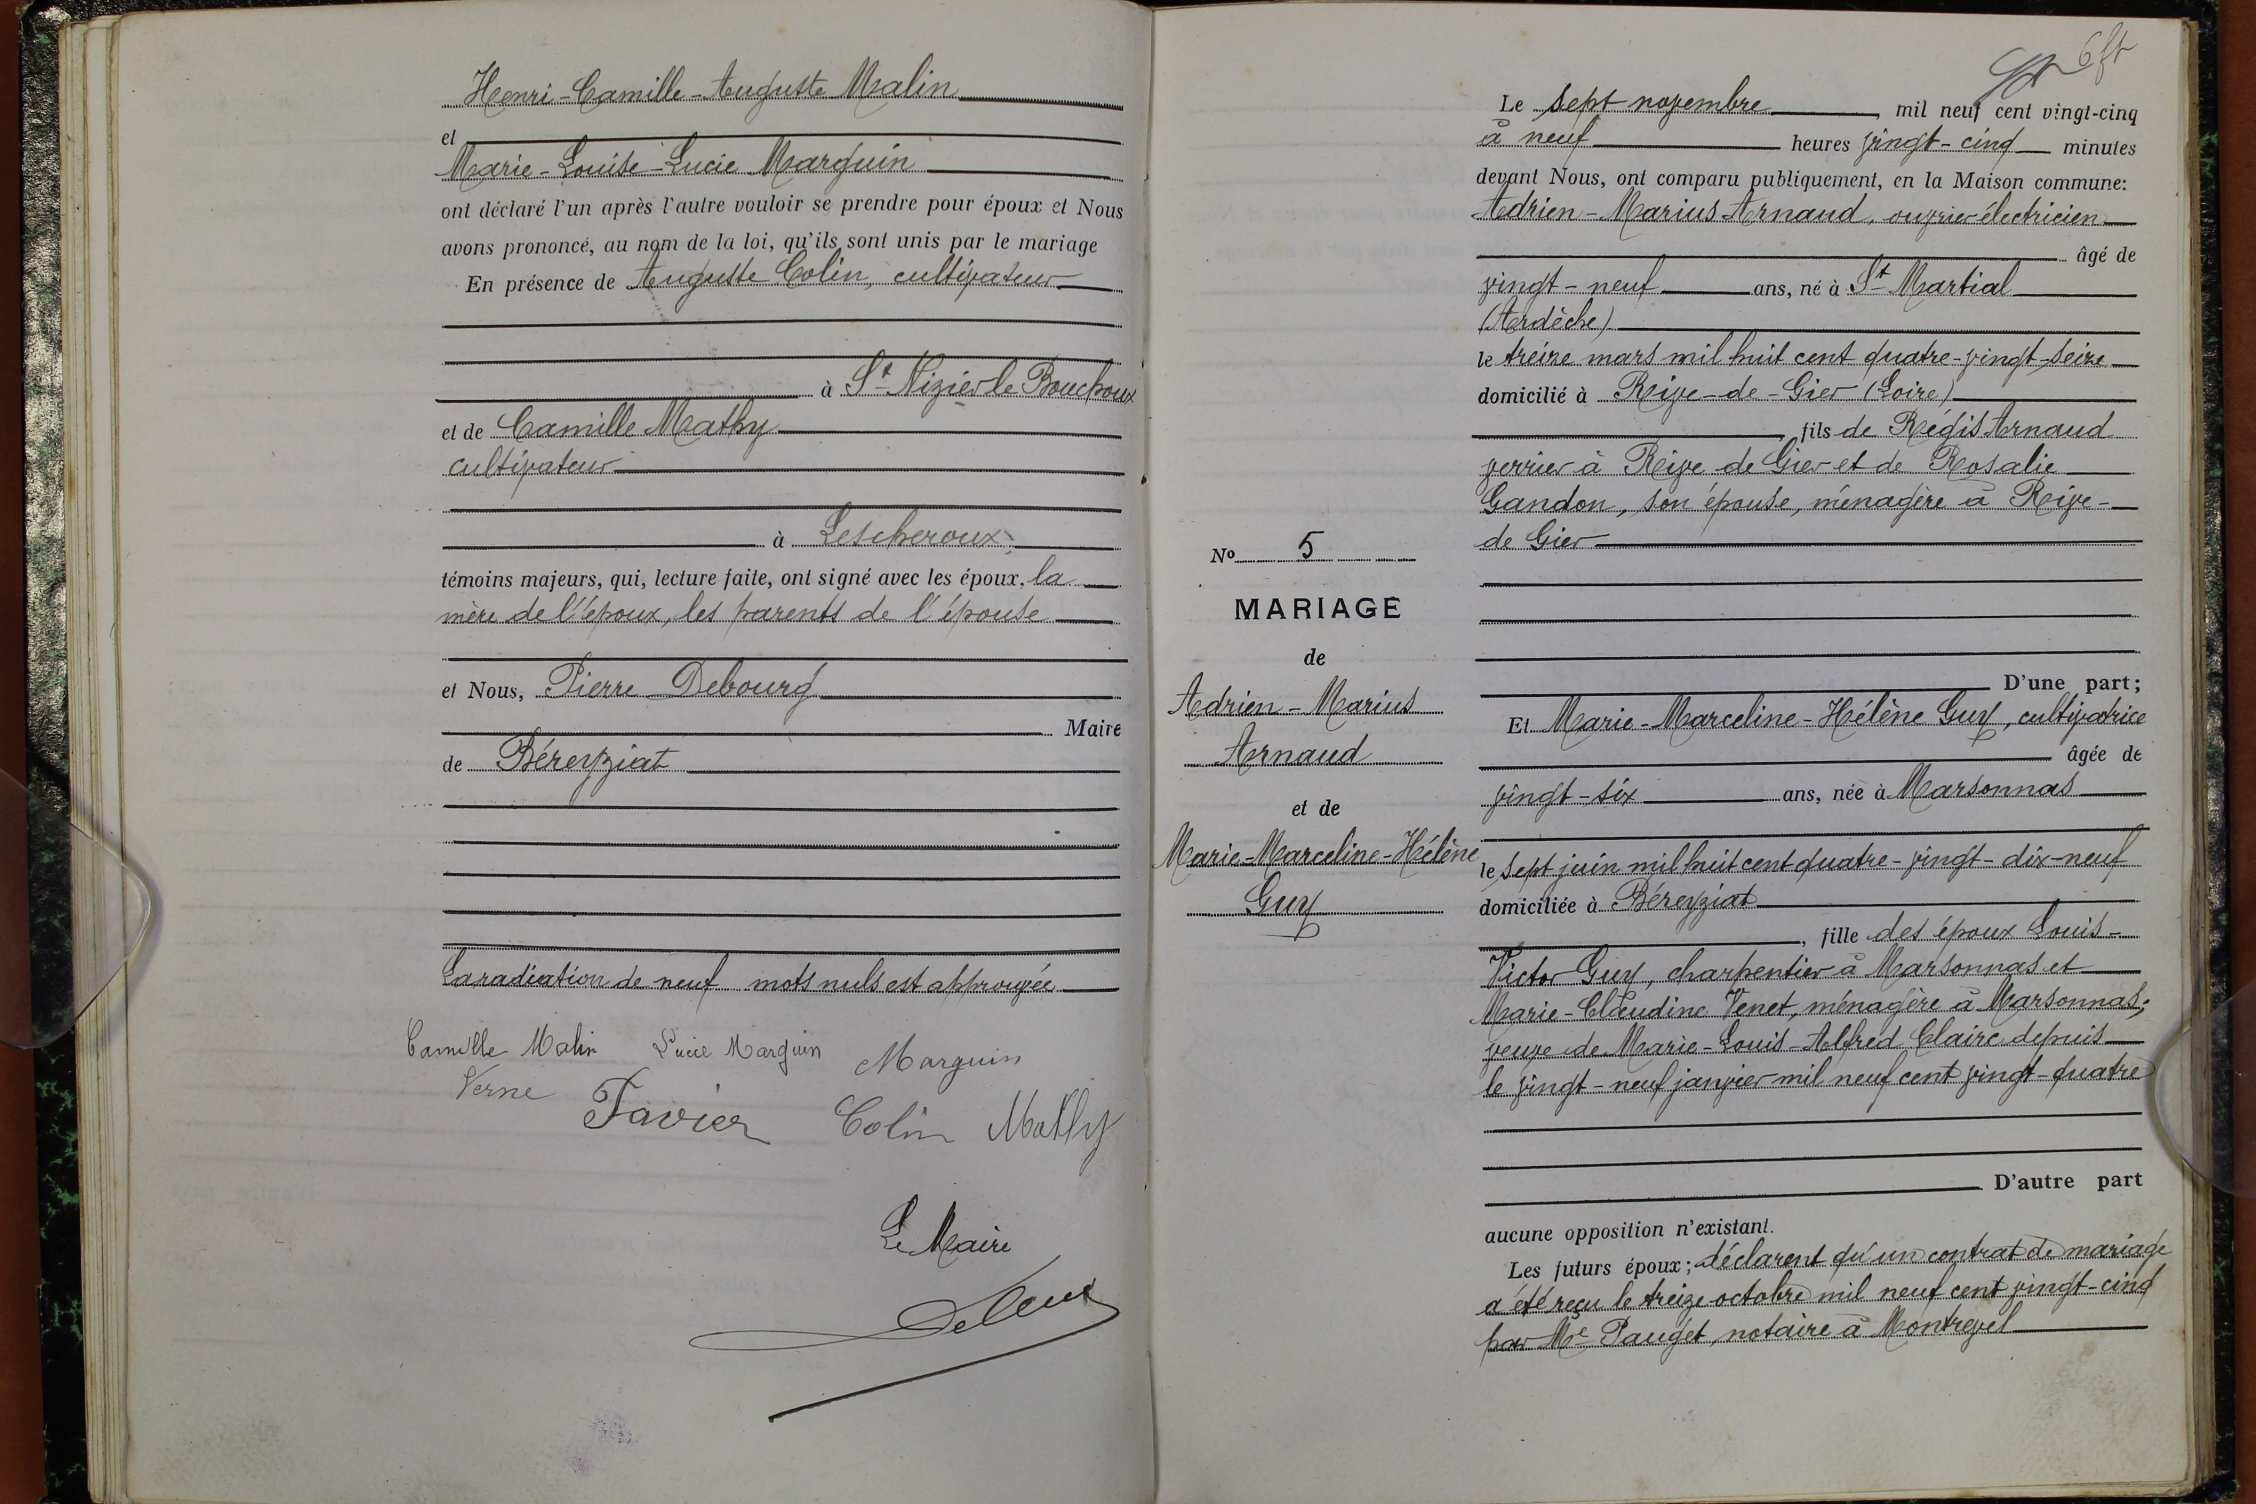 Henri-Camille-Auguste Malin
et
Marie-Louise-Lucie Marguin
ont déclaré l'un après l'autre vouloir se prendre pour époux et Nous
avons prononcé, au nom de la loi, qu'ils sont unis par le mariage
En présence de Auguste Colin, cultivateur
à St Nizier le Bouchoux
et de Camille Mathy
cultivateur
à Lescheroux,
témoins majeurs, qui, lecture faite, ont signé avec les époux, la
mère de l'époux, les parents de l'épouse
et Nous, Pierre Debourg
Maire
de Béreyziat
La radiation de neuf mots nuls est approuvée
Camille Malin Lucie Marguin Marguin
Verne Favier Colin Mathy
Le Maire
6 ft
Le sept novembre mil neuf cent vingt-cinq
à neuf heures vingt-cinq minutes
devant Nous, ont comparu publiquement, en la Maison commune:
Adrien-Marius Arnaud, ouvrier électricien
âgé de
vingt-neuf ans, né à St Martial
(Ardèche)
le treize mars mil huit cent quatre-vingt-seize
domicilié à Rive-de-Gier (Loire)
, fils de Régis Arnaud
verrier à Rive de Gier et de Rosalie
Gandon, son épouse, ménagère à Rive-
de Gier
D'une part;
Et Marie-Marceline-Hélène Guy, cultivatrice
âgée de
vingt-six ans, née à Marsonnas
le sept juin mil huit cent quatre-vingt-dix-neuf
domiciliée à Béreyziat
, fille des époux Louis-
Victor Guy, charpentier à Marsonnas et
Marie-Claudine Venet, ménagère à Marsonnas;
veuve de Marie-Louis-Alfred Claire depuis
le vingt-neuf janvier mil neuf cent vingt-quatre
D'autre part
aucune opposition n'existant.
Les futurs époux; déclarent qu'un contrat de mariage
a été reçu le treize octobre mil neuf cent vingt-cinq
par Me Pauget, notaire à Montrevel
No 5
MARIAGE
de
Adrien-Marius
Arnaud
et de
Marie-Marceline-Hélène
Guy